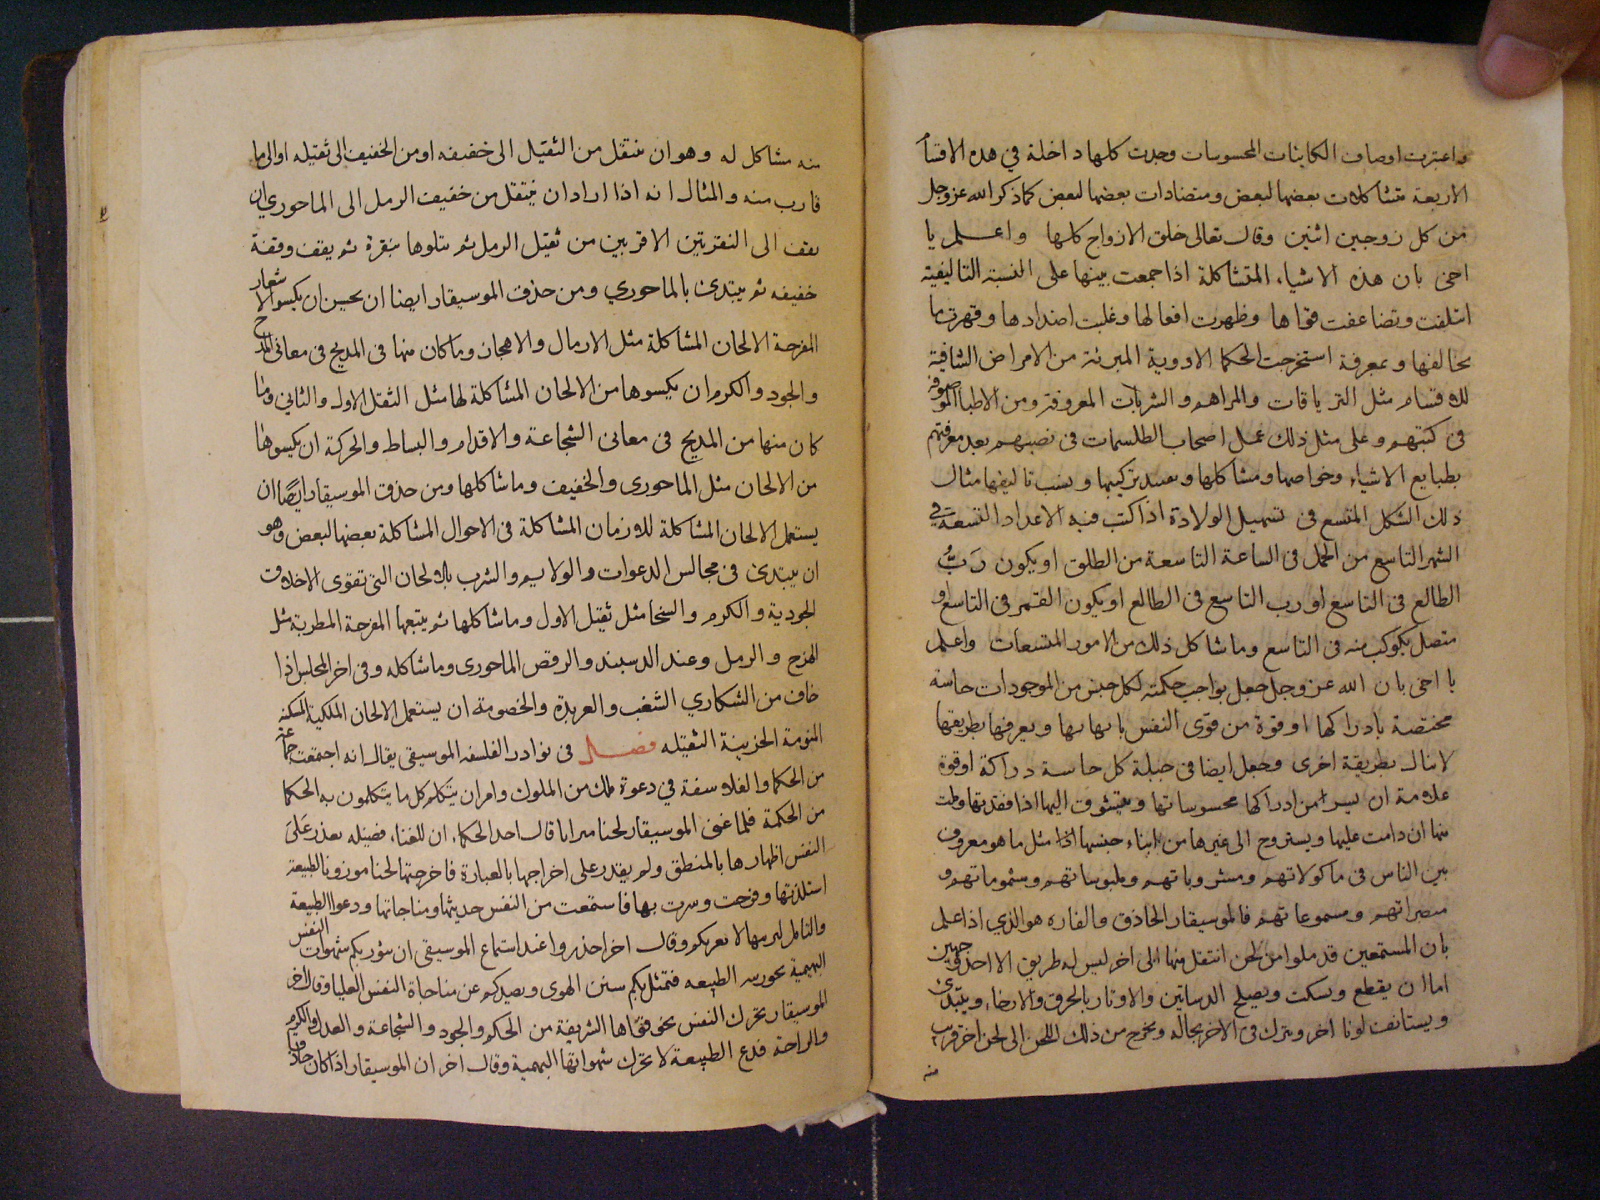 واعتبرت اوصاف الكاينات المحسوسات وجدت كلها داخلة في هذه الاقسام
الاربعة متشاكلات بعضها لبعض ومتضادات بعضها لبعض كما ذكر الله عز وجل
من كل زوجين اثنين وقال تعالى خلق الازواج كلها واعلم يا
اخي بان هذه الاشياء المتشاكلة اذا جمعت بينها على النسبة التاليفية
ائتلفت وتضاعفت قواها وظهرت افعالها وغلبت اضدادها وقهرت ما
يخالفها وبمعرفة استخرجت الحكما الادوية المبرئة من الامراض الشافية
للاقسام مثل الترياقات والمراهم والشربات المعروفة ومن الاطبا الموصوفة
في كتبهم وعلى مثل ذلك عمل اصحاب الطلسمات في نصبهم بعد معرفتهم
بطبايع الاشياء وخواصها ومشاكلها وتركيبها ونسب تاليفها مثال
ذلك الشكل المتسع في تسهيل الولادة اذا كتب فيه الاعداد التسعة في
الشهر التاسع من الحمل في الساعة التاسعة من الطلق او يكون رب
الطالع في التاسع او رب التاسع في الطالع او يكون القمر في التاسع او
متصل بكوكب منه في التاسع وما شاكل ذلك من الامور المتسعات واعلم
يا اخي بان الله عز وجل جعل بواجب حكمته لكل جنس من الموجودات حاسة
مختصة بادراكها او قوة من قوى النفس بها وتعرفها بطريقها
لا تنال بطريقة اخرى وجعل ايضا في جبلة كل حاسة دراكة او قوة
علامة ان من ادراكها محسوساتها وتتشوق اليها اذا فقدتها وملت
منها ان دامت عليها ويستروح الى غيرها من ابناء جنسها مثل ما هو معروف
بين الناس في ماكولاتهم ومشروباتهم وملبوساتهم ومشموماتهم و
مبصراتهم ومسموعاتهم فالموسيقار الحاذق والفاره هو الذي اذا علم
بان المستمعين قد ملوا من لحن انتقل منها الى اخر ليس له طريق الا احد وجهين
اما ان يقطع ويسكت ويصلح الدساتين والاوتار بالحرق والارخاء ويبتدئ
ويستانف لونا اخر ويترك في الاخر بحاله ويخرج من ذلك اللحن الى لحن اخر قريب
منه
منه مشاكل له وهو ان ينتقل من الثقيل الى خفيفه او من الخفيف الى ثقيله او الى ما
قارب منه والمثال انه اذا اراد ان ينتقل من خفيف الرمل الى الماخوري ان
يقف الى النقرتين الاخريين من ثقيل الرمل ثم يتلوها بنقرة ثم يقف وقفة
خفيفه ثم يبتدئ بالماحوري ومن حذق الموسيقار ايضا ان يحسن ان يكسو الاشعار
المفرحة الالحان المشاكلة مثل الارمال والاهجاز وما كان منها في المديح في معاني المدح
والجود والكرم ان يكسوها من الالحان المشاكلة لها مثل الثقل الاول والثاني وما
كان منها من المديح في معاني الشجاعة والاقدام والبساط والحركة ان يكسوها
من الالحان مثل الماحوري والخفيف وما شاكلها ومن حذق الموسيقار ايضا ان
يستعمل الالحان المشاكلة للازمان المشاكلة في الاحوال المشاكلة بعضها لبعض وهو
ان يبتدئ في مجالس الدعوات والولايم والشرب بالالحان التي تقوى الاخلاق
الجودية والكرم والسخا مثل ثقيل الاول وما شاكلها ثم يتبعها المفرحة المطربة مثل
الهزج والرمل وعند الدسبند والرقص الماحوري وما شاكله وفي اخر المجلس اذا
خاف من السكاري الشغب والعربدة والخصومة ان يستعمل الالحان الملكية المسكنة
النومة الحزينة الثقيله فصل في نوادر الفلسفه الموسيقى يقال انه اجتمعت جماعة
من الحكما والفلاسفة في دعوة ملك من الملوك وامر ان يتكلم كل ما يتكلمون به الحكما
من الحكمة فلما غنى الموسيقار لحنا قال احد الحكماء ان للغناء فضيله تعذر على
النفس اظهارها بالمنطق ولم يقدر على اخراجها بالعبارة فاخرجتها لحنا موزونا الطبيعة
استلذتها وفرحت وسرت بها فاستمعت من النفس حديثها ومناجاتها ودعوا الطبيعة
والتامل لا تغرنكم وقال اخر احذروا عند استماع الموسيقى ان يثور بكم شهوات النفس
البهيمية نحو الطبيعه فتمثل بكم سنن الهوى ويصدكم عن مناجاة النفس العليا وقال اخر
الموسيقار يحرك النفس نحو قواها الشريفة من الحكم والجود والشجاعة والعدل والكرم
والراحة فدع الطبيعة لا تحرك شهواتها البهيمية وقال اخر ان الموسيقار اذا كان حاذقا